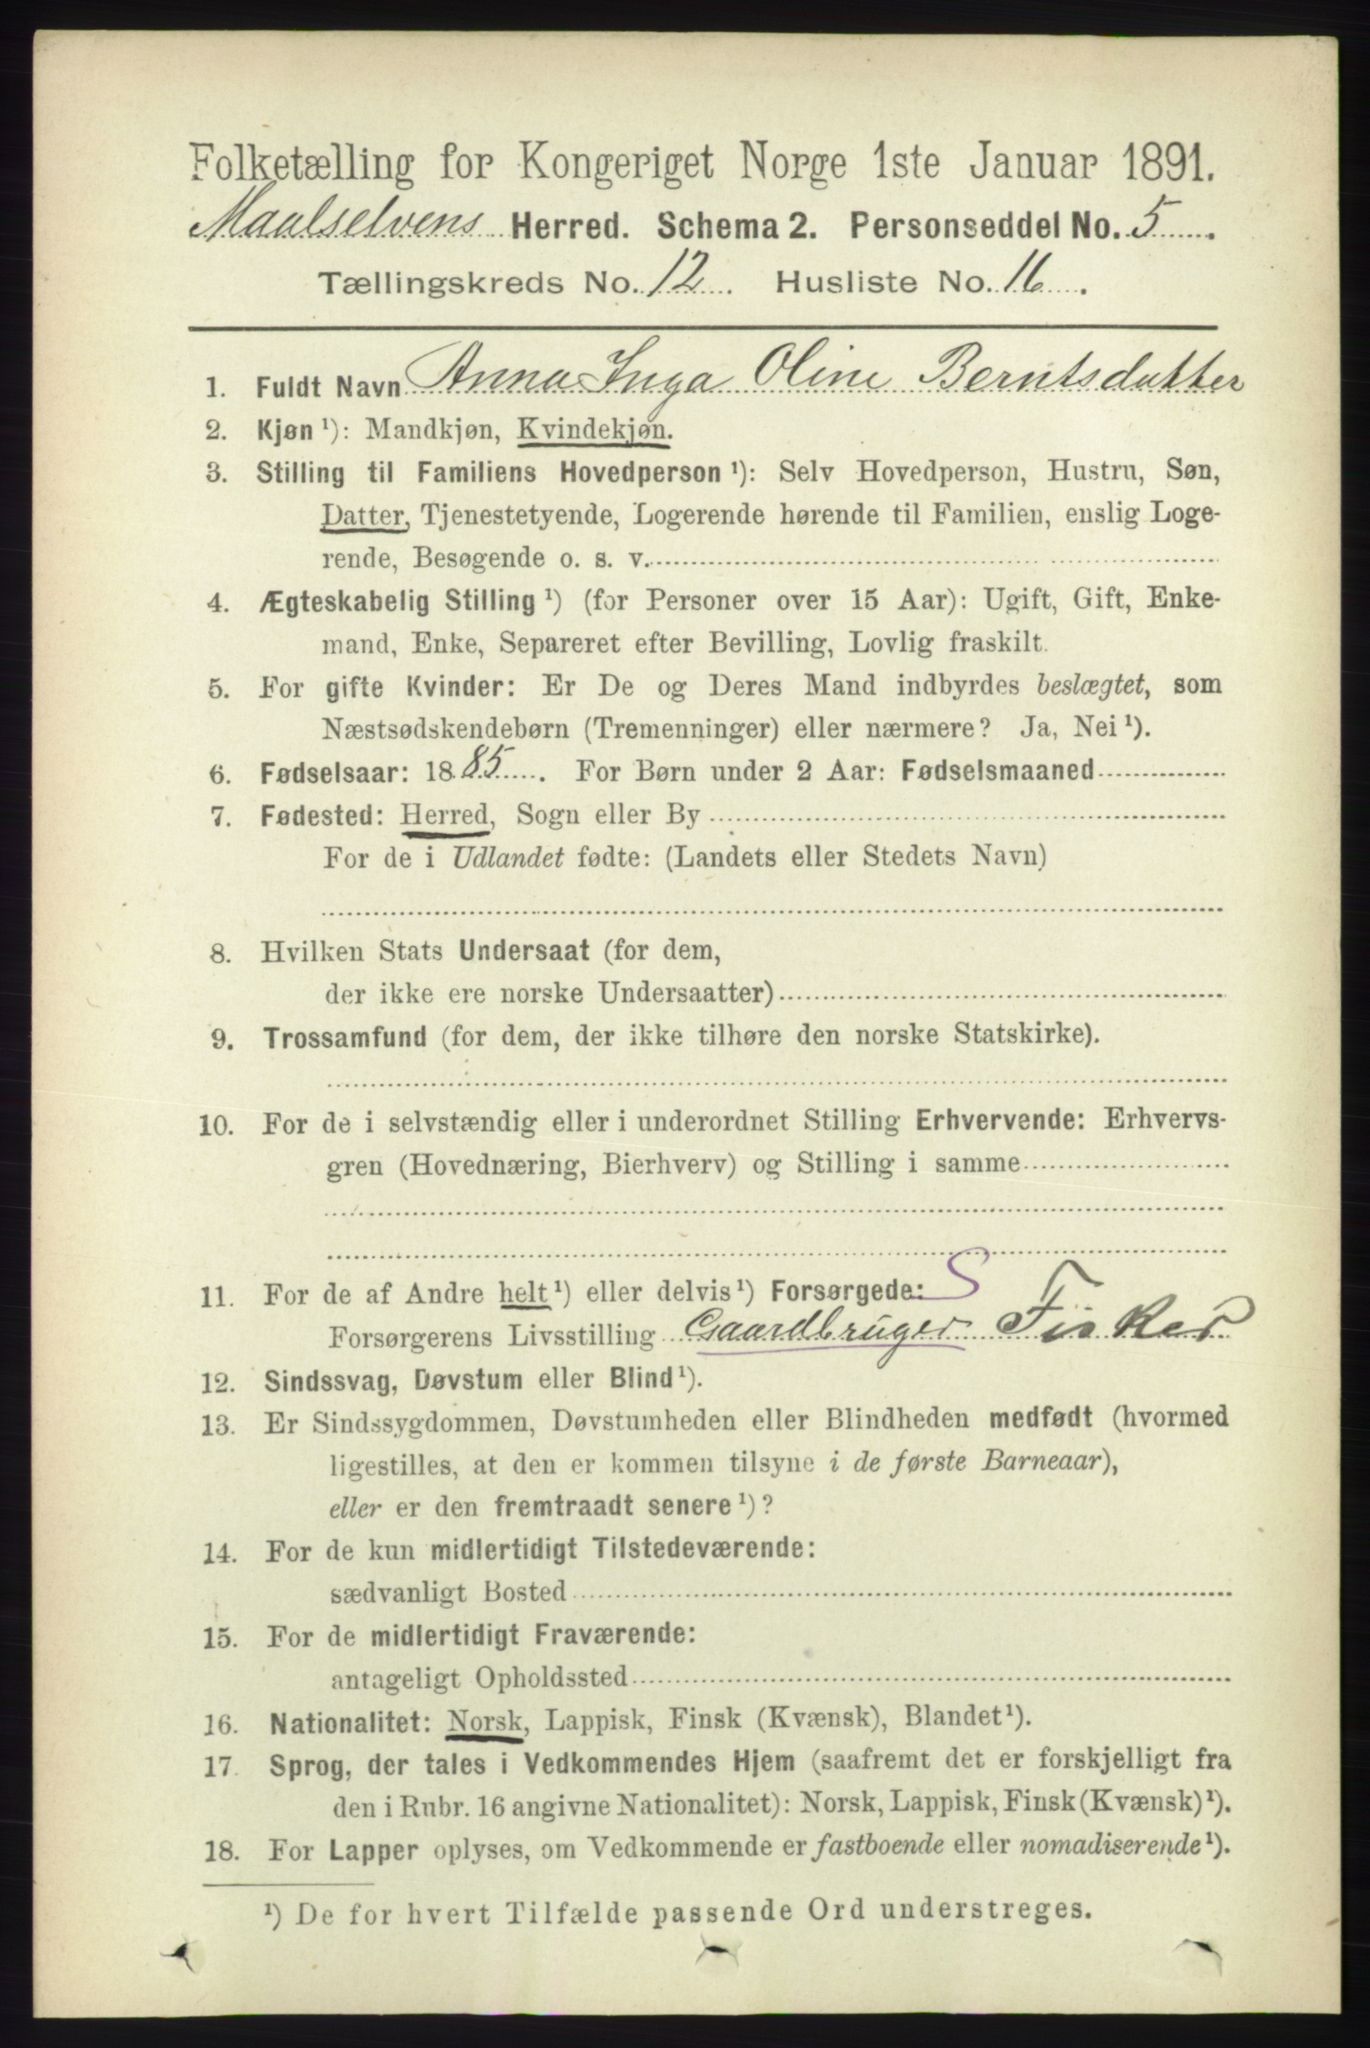 Folketælling for Kongeriget Norge 1ste Januar 1891.
Maalselvens Herred. Schema 2. Personseddel No. 5.
Tællingskreds No. 12. Husliste No. 16.
1. Fuldt Navn Anna Inga Oline Berntsdatter
2. Kjøn ¹): Mandkjøn, Kvindekjøn.
3. Stilling til Familiens Hovedperson ¹): Selv Hovedperson, Hustru, Søn,
Datter, Tjenestetyende, Logerende hørende til Familien, enslig Loge-
rende, Besøgende o. s. v.
4. Ægteskabelig Stilling ¹) (for Personer over 15 Aar): Ugift, Gift, Enke-
mand, Enke, Separeret efter Bevilling, Lovlig fraskilt.
5. For gifte Kvinder: Er De og Deres Mand indbyrdes beslægtet, som
Næstsødskendebørn (Tremenninger) eller nærmere? Ja, Nei ¹).
6. Fødselsaar: 1885. For Børn under 2 Aar: Fødselsmaaned
7. Fødested: Herred, Sogn eller By
For de i Udlandet fødte: (Landets eller Stedets Navn)
8. Hvilken Stats Undersaat (for dem,
der ikke ere norske Undersaatter)
9. Trossamfund (for dem, der ikke tilhøre den norske Statskirke).
10. For de i selvstændig eller i underordnet Stilling Erhvervende: Erhvervs-
gren (Hovednæring, Bierhverv) og Stilling i samme
11. For de af Andre helt ¹) eller delvis ¹) Forsørgede: S
Forsørgerens Livsstilling Gaardbruger Fisker
12. Sindssvag, Døvstum eller Blind ¹).
13. Er Sindssygdommen, Døvstumheden eller Blindheden medfødt (hvormed
ligestilles, at den er kommen tilsyne i de første Barneaar),
eller er den fremtraadt senere ¹)?
14. For de kun midlertidigt Tilstedeværende:
sædvanligt Bosted
15. For de midlertidigt Fraværende:
antageligt Opholdssted
16. Nationalitet: Norsk, Lappisk, Finsk (Kvænsk), Blandet ¹).
17. Sprog, der tales i Vedkommendes Hjem (saafremt det er forskjelligt fra
den i Rubr. 16 angivne Nationalitet): Norsk, Lappisk, Finsk (Kvænsk) ¹).
18. For Lapper oplyses, om Vedkommende er fastboende eller nomadiserende ¹).
¹) De for hvert Tilfælde passende Ord understreges.